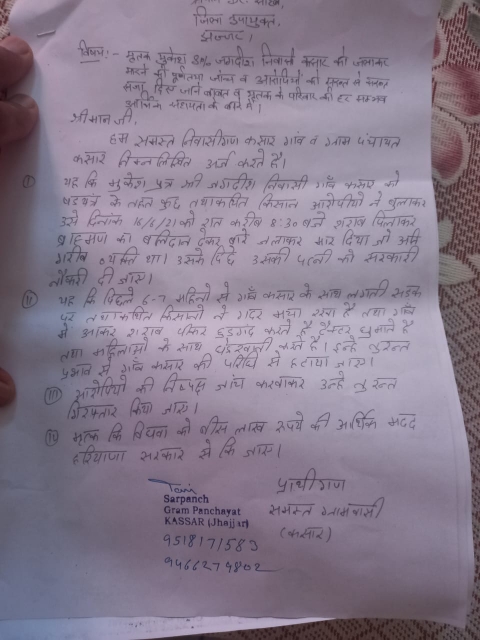 जिला उपायुक्त,
झज्जर।
विषय:- मृतक मुकेश S/o जगदीश निवासी कसार को जलाकर
मारने की पूर्णतया जाँच व आरोपियों को सख्त से सख्त
सजा दिए जाने बाबत व मृतक के परिवार की हर सम्भव
आर्थिक सहायता के बारे में।
श्रीमान जी,
हम समस्त निवासीगण कसार गाँव व ग्राम पंचायत
कसार निम्नलिखित अर्ज करते है।
① यह कि मुकेश पुत्र श्री जगदीश निवासी गाँव कसार को
षडयंत्र के तहत कुछ तथाकथित किसान आरोपीयो ने बुलाकर
उसे दिनांक 16/6/21 को रात करीब 8:30 बजे शराब पिलाकर
ब्राहमण का बलिदान देकर जलाकर मार दिया जो अति
गरीब व्यक्ति था। उसके पिछे उसकी पत्नी को सरकारी
नौकरी दी जाए।
② यह कि पिछले 6-7 महिनो से गाँव कसार के साथ लगती सड़क
पर तथाकथित किसानो ने गदर मचा रखा है तथा गाँव
मे आकर शराब पीकर हुड़दंग करते है ट्रैक्टर घुमाते है
तथा महिलाओ के साथ छेड़खानी करते है। इन्हे तुरन्त
प्रभाव से गाँव कसार की परिधि से हटाया जाए।
III आरोपियो की निष्पक्ष जांच करवाकर उन्हे तुरन्त
गिरफ्तार किया जाए।
IV मृतक कि विधवा को बीस लाख रुपये की आर्थिक मदद
हरियाणा सरकार से कि जाए।
प्रार्थीगण
समस्त ग्रामवासी
(कसार)
Sarpanch
Gram Panchayat
KASSAR (Jhajjar)
9518171583
9466279802